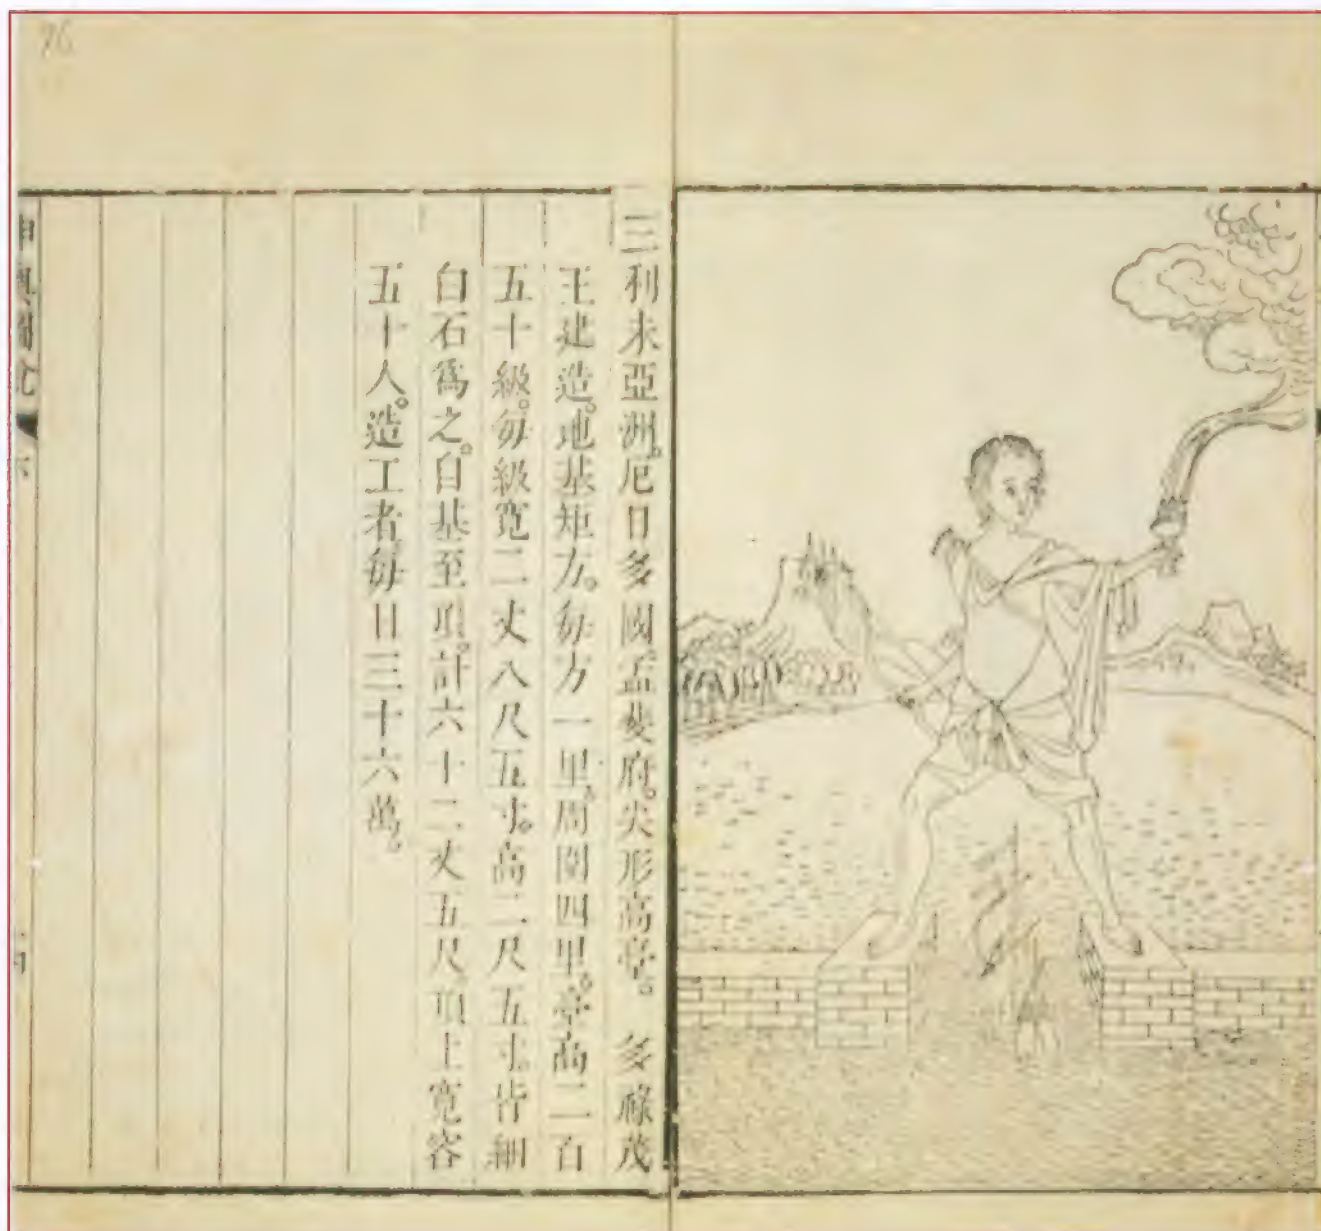 三利未亞洲。厄日多國孟斐府。尖形高臺。 多祿茂
王建造。地基矩方。每方一里。周圍四里。臺高二百
五十級。每級寬二丈八尺五寸。高二尺五寸。皆細
白石爲之。自基至頂。計六十二丈五尺。頂上寬容
五十人。造工者每日三十六萬。
坤輿圖說 下